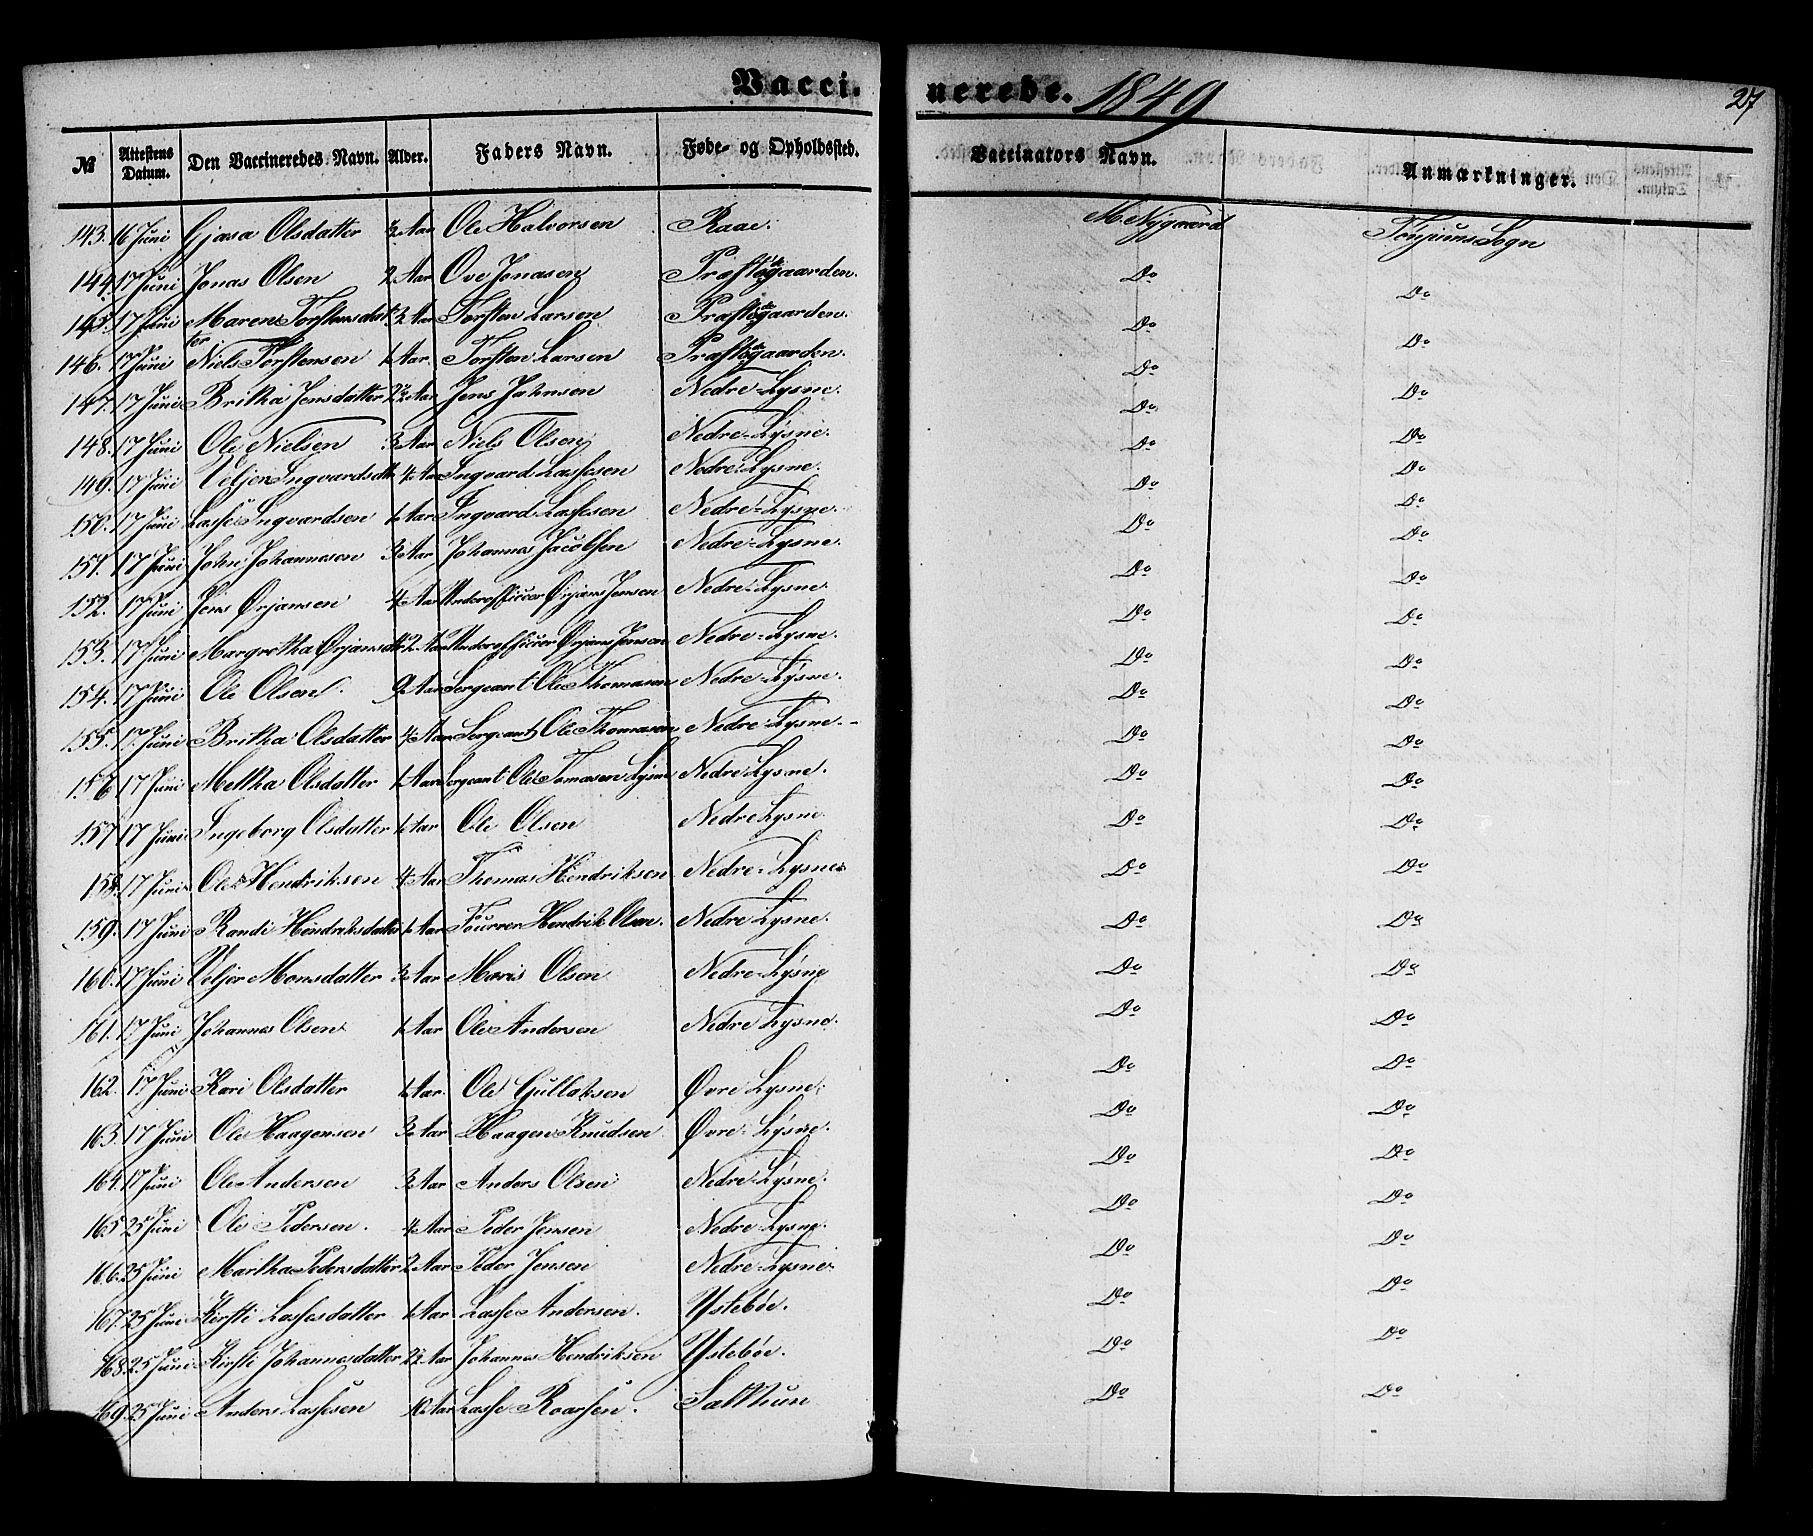 Vacci. nerede. 1849 27
№ Attestens Datum. Den Vaccineredes Navn. Alder. Faders Navn. Føde- og Opholdssted. Vaccinators Navn. Anmærkninger.
143. 16 Juni Gjasa Olsdatter 3 Aar Ole Halvorsen Raae. M Nygaard Tønjums Sogn
144. 17 Juni Jonas Olsen 2 Aar Ove Jonasen Præstegaarden. Do Do
145. 17 Juni Maren Torstensdat 3 Aar Torsten Larsen Præstegaarden. Do Do
ter
146. 17 Juni Niels Torstensen 1 Aar. Torsten Larsen Præstegaarden. Do Do
147. 17 Juni Britha Jensdatter Aar Jens Nedre-Lysne. Do Do
148. 17 Juni Ole Nielsen 3 Aar Niels Olsen Nedre-Lysne. Do Do
149. 17 Juni Ingvardsdtr 4 Aar Ingvard Lassesen Nedre-Lysne. Do Do
150. 17 Juni Lasse Ingvardsen 1 Aar Ingvard Lassesen Nedre-Lysne. Do Do
151. 17 Juni John Johannesen 3 Aar Johannes Jacobsen Nedre-Lysne. Do Do
152. 17 Juni Jens Ørjansen 4 Aar Underofficeer Ørjans Jensen Nedre-Lysne. Do Do
153. 17 Juni Margretha Ørjansdtr 2 Aar Underofficeer Ørjans Jensen Nedre-Lysne. Do Do
154. 17 Juni Ole Olsen. 9 Aar Sergeant Ole Thomasen Nedre-Lysne. Do Do
155. 17 Juni Britha Olsdatter 4 Aar Sergeant Ole Thomasen Nedre-Lysne. Do Do
156 17 Juni Mettha Olsdatter 1 Aar Sergeant Ole Tomasen Lysne Nedre Lysne. Do Do
157 17 Juni Ingeborg Olsdatter 1 Aar Ole Olsen Nedre Lysne Do Do
158. 17 Juni Ole Hendriksen 4 Aar Thomas Hendriksen Nedre-Lysne Do Do
159. 17 Juni Randi Hendriksdatter 1 Aar Hendrik Olsen. Nedre Lysne. Do Do
160. 17 Juni Monsdatter 3 Aar Olsen Nedre-Lysne Do Do
161. 17 Juni Johannes Olsen 1 Aar Ole Andersen Nedre Lysne. Do Do
162. 17 Juni Kari Olsdatter 1 Aar. Ole Gullaksen Øvre Lysne. Do Do
163. 17 Juni Ole Haagensen 3 Aar Haagen Knudsen Øvre-Lysne. Do Do
164. 17 Juni Ole Andersen 3 Aar Anders Olsen Nedre-Lysne. Do Do
165 25 Juni Ole Pedersen. 4 Aar Peder Jensen Nedre-Lysne. Do Do
166. 25 Juni Martha Pedersdatter 2 Aar Peder Jensen Nedre-Lysne Do Do
167. 25 Juni Kirsti Lassesdatter 1 Aar. Lasse Andersen. Ystebøe. Do Do
168. 25 Juni Kirsti Johannesdatter Aar Johannes Hendriksen Ystebøe. Do Do
169. 25 Juni Anders Lassesen 10 Aar Lasse Roarsen. Sæltthun Do Do